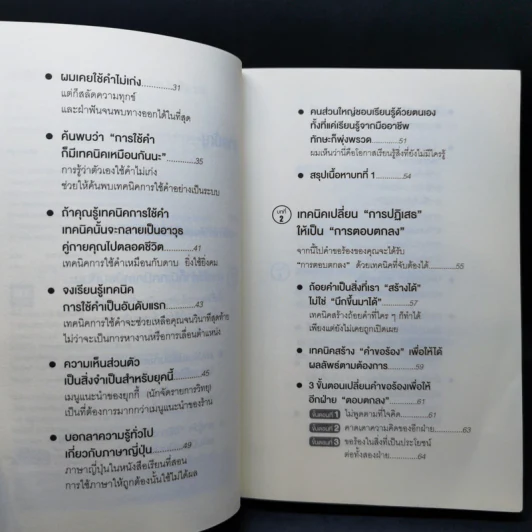 ● ผมเคยใช้คำไม่เก่ง............31
แต่ก็สลัดความทุกข์
และฝ่าฟันจนพบทางออกได้ในที่สุด
● ค้นพบว่า “การใช้คำ
ก็มีเทคนิคเหมือนกันนะ”..........35
การรู้ว่าตัวเองใช้คำไม่เก่ง
ช่วยให้ค้นพบเทคนิคการใช้คำอย่างเป็นระบบ
● ถ้าคุณรู้เทคนิคการใช้คำ
เทคนิคนั้นจะกลายเป็นอาวุธ
คู่กายคุณไปตลอดชีวิต..........41
เทคนิคการใช้คำเหมือนกับดาบ ยิ่งใช้ยิ่งคม
● จงเรียนรู้เทคนิค
การใช้คำเป็นอันดับแรก..........43
เทคนิคการใช้คำจะช่วยเหลือคุณจนวินาทีสุดท้าย
ไม่ว่าจะเป็นการหางานหรือการเลื่อนตำแหน่ง
● ความเห็นส่วนตัว
เป็นสิ่งจำเป็นสำหรับยุคนี้..........45
เมนูแนะนำของยุกกี้ (นักจัดรายการวิทยุ)
เป็นที่ต้องการมากกว่าเมนูแนะนำของร้าน
● บอกลาความรู้ทั่วไป
เกี่ยวกับภาษาญี่ปุ่น..........49
ภาษาญี่ปุ่นในหนังสือเรียนที่สอน
การใช้ภาษาให้ถูกต้องนั้นใช้ไม่ได้ผล
● คนส่วนใหญ่ชอบเรียนรู้ด้วยตนเอง
ทั้งที่แค่เรียนรู้จากมืออาชีพ
ทักษะก็พุ่งพรวด..........51
ผมเห็นว่านี่คือโอกาสเรียนรู้สิ่งที่ยังไม่มีใครรู้
● สรุปเนื้อหาบทที่ 1..........54
บทที่ 2 เทคนิคเปลี่ยน “การปฏิเสธ”
ให้เป็น “การตอบตกลง”
จากนี้ไปคำขอร้องของคุณจะได้รับ
“การตอบตกลง” ด้วยเทคนิคที่จับต้องได้..........55
● ถ้อยคำเป็นสิ่งที่เรา “สร้างได้”
ไม่ใช่ “นึกขึ้นมาได้”..........57
เทคนิคสร้างถ้อยคำที่ใคร ๆ ก็ทำได้
เพียงแต่ยังไม่เคยถูกเปิดเผย
● เทคนิคสร้าง “คำขอร้อง” เพื่อให้ได้
ผลลัพธ์ตามต้องการ..........59
● 3 ขั้นตอนเปลี่ยนคำขอร้องเพื่อให้
อีกฝ่าย “ตอบตกลง”..........61
ขั้นตอนที่ 1 ไม่พูดตามที่ใจคิด..........61
ขั้นตอนที่ 2 คาดเดาความคิดของอีกฝ่าย..........63
ขั้นตอนที่ 3 ขอร้องในสิ่งที่เป็นประโยชน์
ต่อทั้งสองฝ่าย..........64